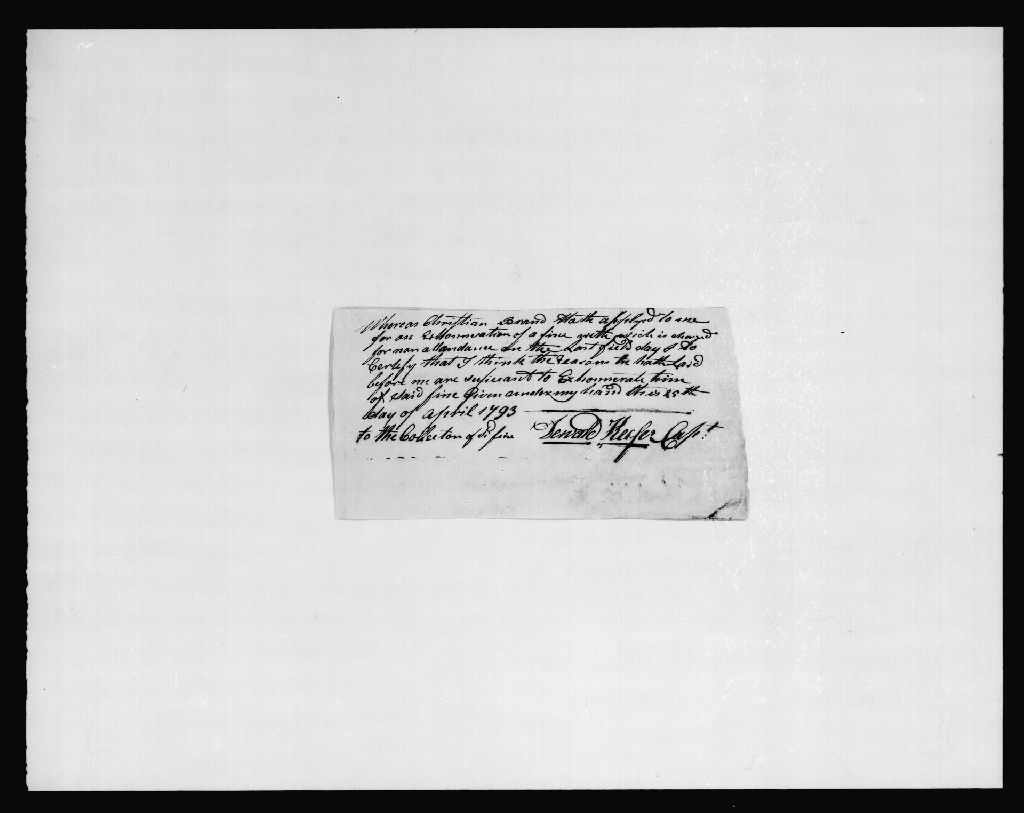 Whereas Christian Brand Hath applyed to me
for an Exhonneration of a fine with which is charged
for non attendance on the Last field day I do
Certefy that I think the reasons he hath Laid
before me are sufficiant to Exhonnerate him
of Said fine Given under my hand this 25th
day of April 1793
to the Collector of sd fine Dewald Keefer Capt